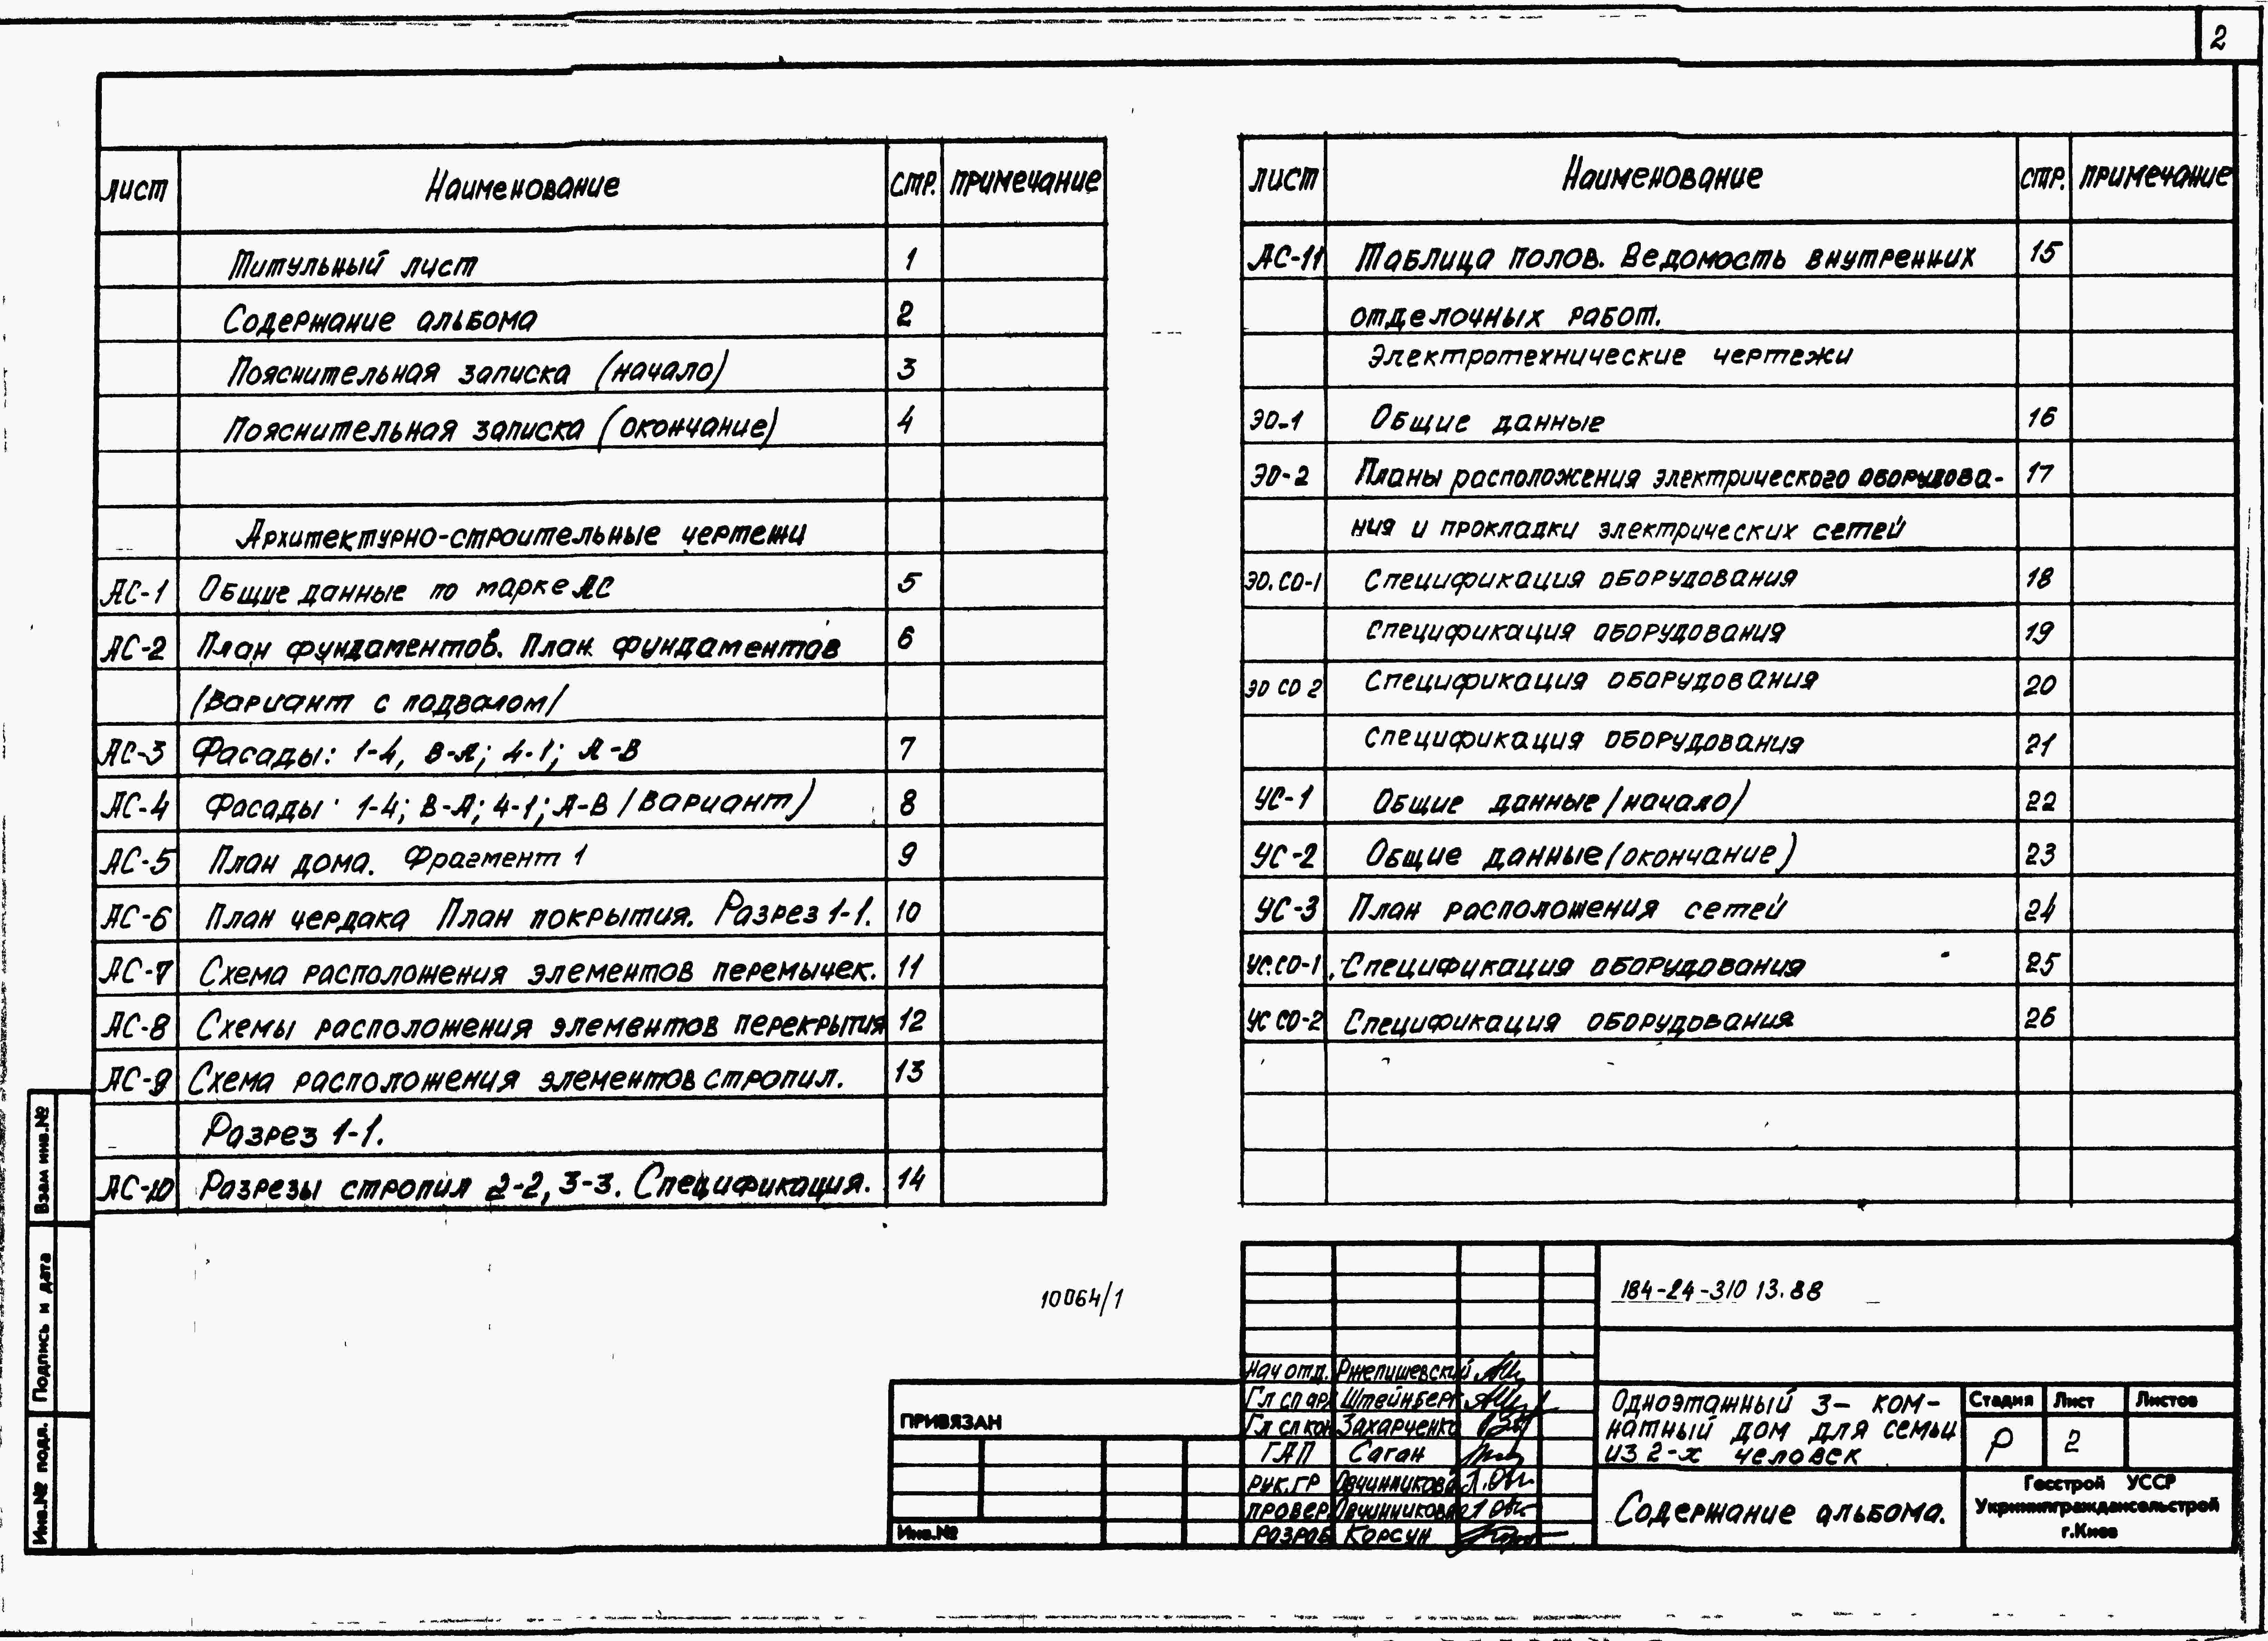 2
лист Наименование стр. примечание
Титульный лист 1
Содержание альбома 2
Пояснительная записка (начало) 3
Пояснительная записка (окончание) 4
Архитектурно-строительные чертежи
АС-1 Общие данные по марке АС 5
АС-2 План фундаментов. План фундаментов 6
/вариант с подвалом/
АС-3 Фасады: 1-4, В-А; 4-1; А-В 7
АС-4 Фасады 1-4; В-А; 4-1; А-В /вариант) 8
АС-5 План дома. Фрагмент 1 9
АС-6 План чердака План покрытия. Разрез 1-1. 10
АС-7 Схема расположения элементов перемычек. 11
АС-8 Схемы расположения элементов перекрытия 12
АС-9 Схема расположения элементов стропил. 13
Разрез 1-1.
АС-10 Разрезы стропил 2-2, 3-3. Спецификация. 14
лист Наименование стр. примечание
АС-11 Таблица полов. Ведомость внутренних 15
отделочных работ.
Электротехнические чертежи
ЭО-1 Общие данные 16
ЭО-2 Планы расположения электрического оборудова- 17
ния и прокладки электрических сетей
ЭО.СО-1 Спецификация оборудования 18
Спецификация оборудования 19
ЭО СО 2 Спецификация оборудования 20
Спецификация оборудования 21
УС-1 Общие данные /начало) 22
УС-2 Общие данные (окончание) 23
УС-3 План расположения сетей 24
УС.СО-1 Спецификация оборудования 25
УС СО-2 Спецификация оборудования 26
Взам инв.№
Подпись и дата
Инв.№ подл.
10064/1
ПРИВЯЗАН
Инв.№
184-24-310 13.88
Нач отд. Ржепишевский
Гл сп арх Штейнберг
Гл сп кон Захарченко
ГАП Саган
Рук.гр Овчинникова
Провер Овчинникова
Разраб Корсун
Одноэтажный 3- ком-
натный дом для семьи
из 2-х человек
Содержание альбома.
Стадия Лист Листов
Р 2
Госстрой УССР
Укрниипграждансельстрой
г.Киев